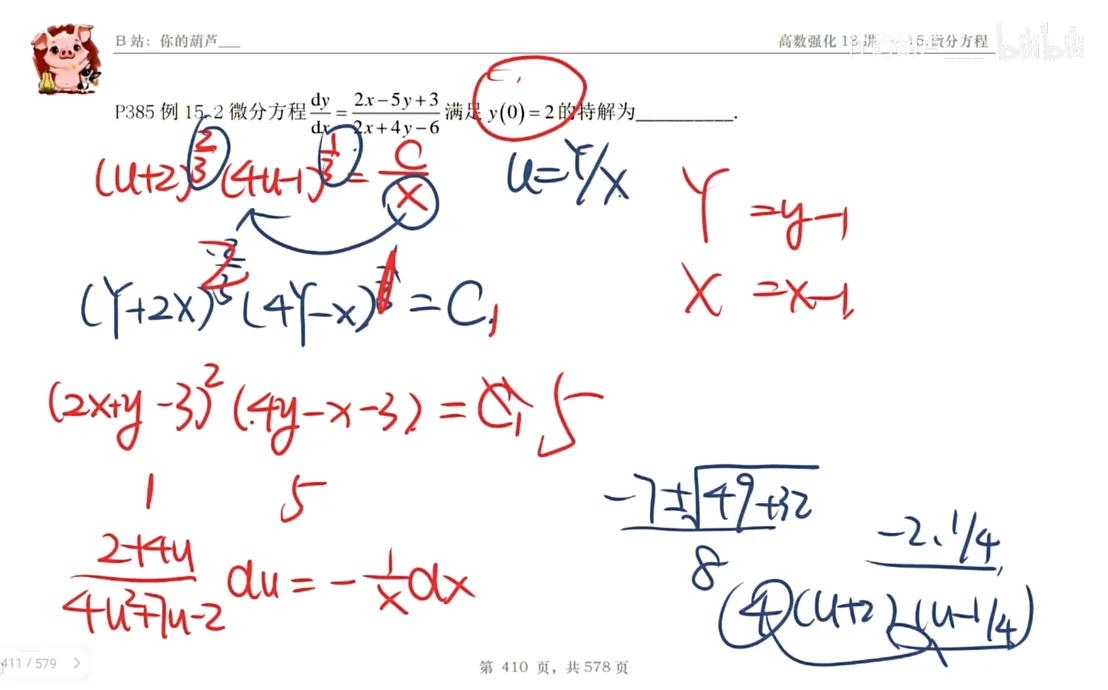 B 站：你的葫芦___
高数强化 18 讲 15.微分方程
bilibili
P385 例 15.2 微分方程 dy/dx = (2x−5y+3)/(2x+4y−6) 满足 y(0)=2 的特解为__________.
(u+2)^(2/3) (4u-1)^(1/3) = C/X
u=Y/X
Y =y-1
X =x-1
(Y+2X)^2 (4Y-X)^1 = C₁
(2x+y-3)^2 (4y-x-3) = C₁ 5
1 5
(2+4u)/(4u²+7u-2) du = -1/x dx
(-7±√(49+32))/8
-2、1/4
(4(u+2)(u-1/4)
411 / 579 >
第 410 页，共 578 页